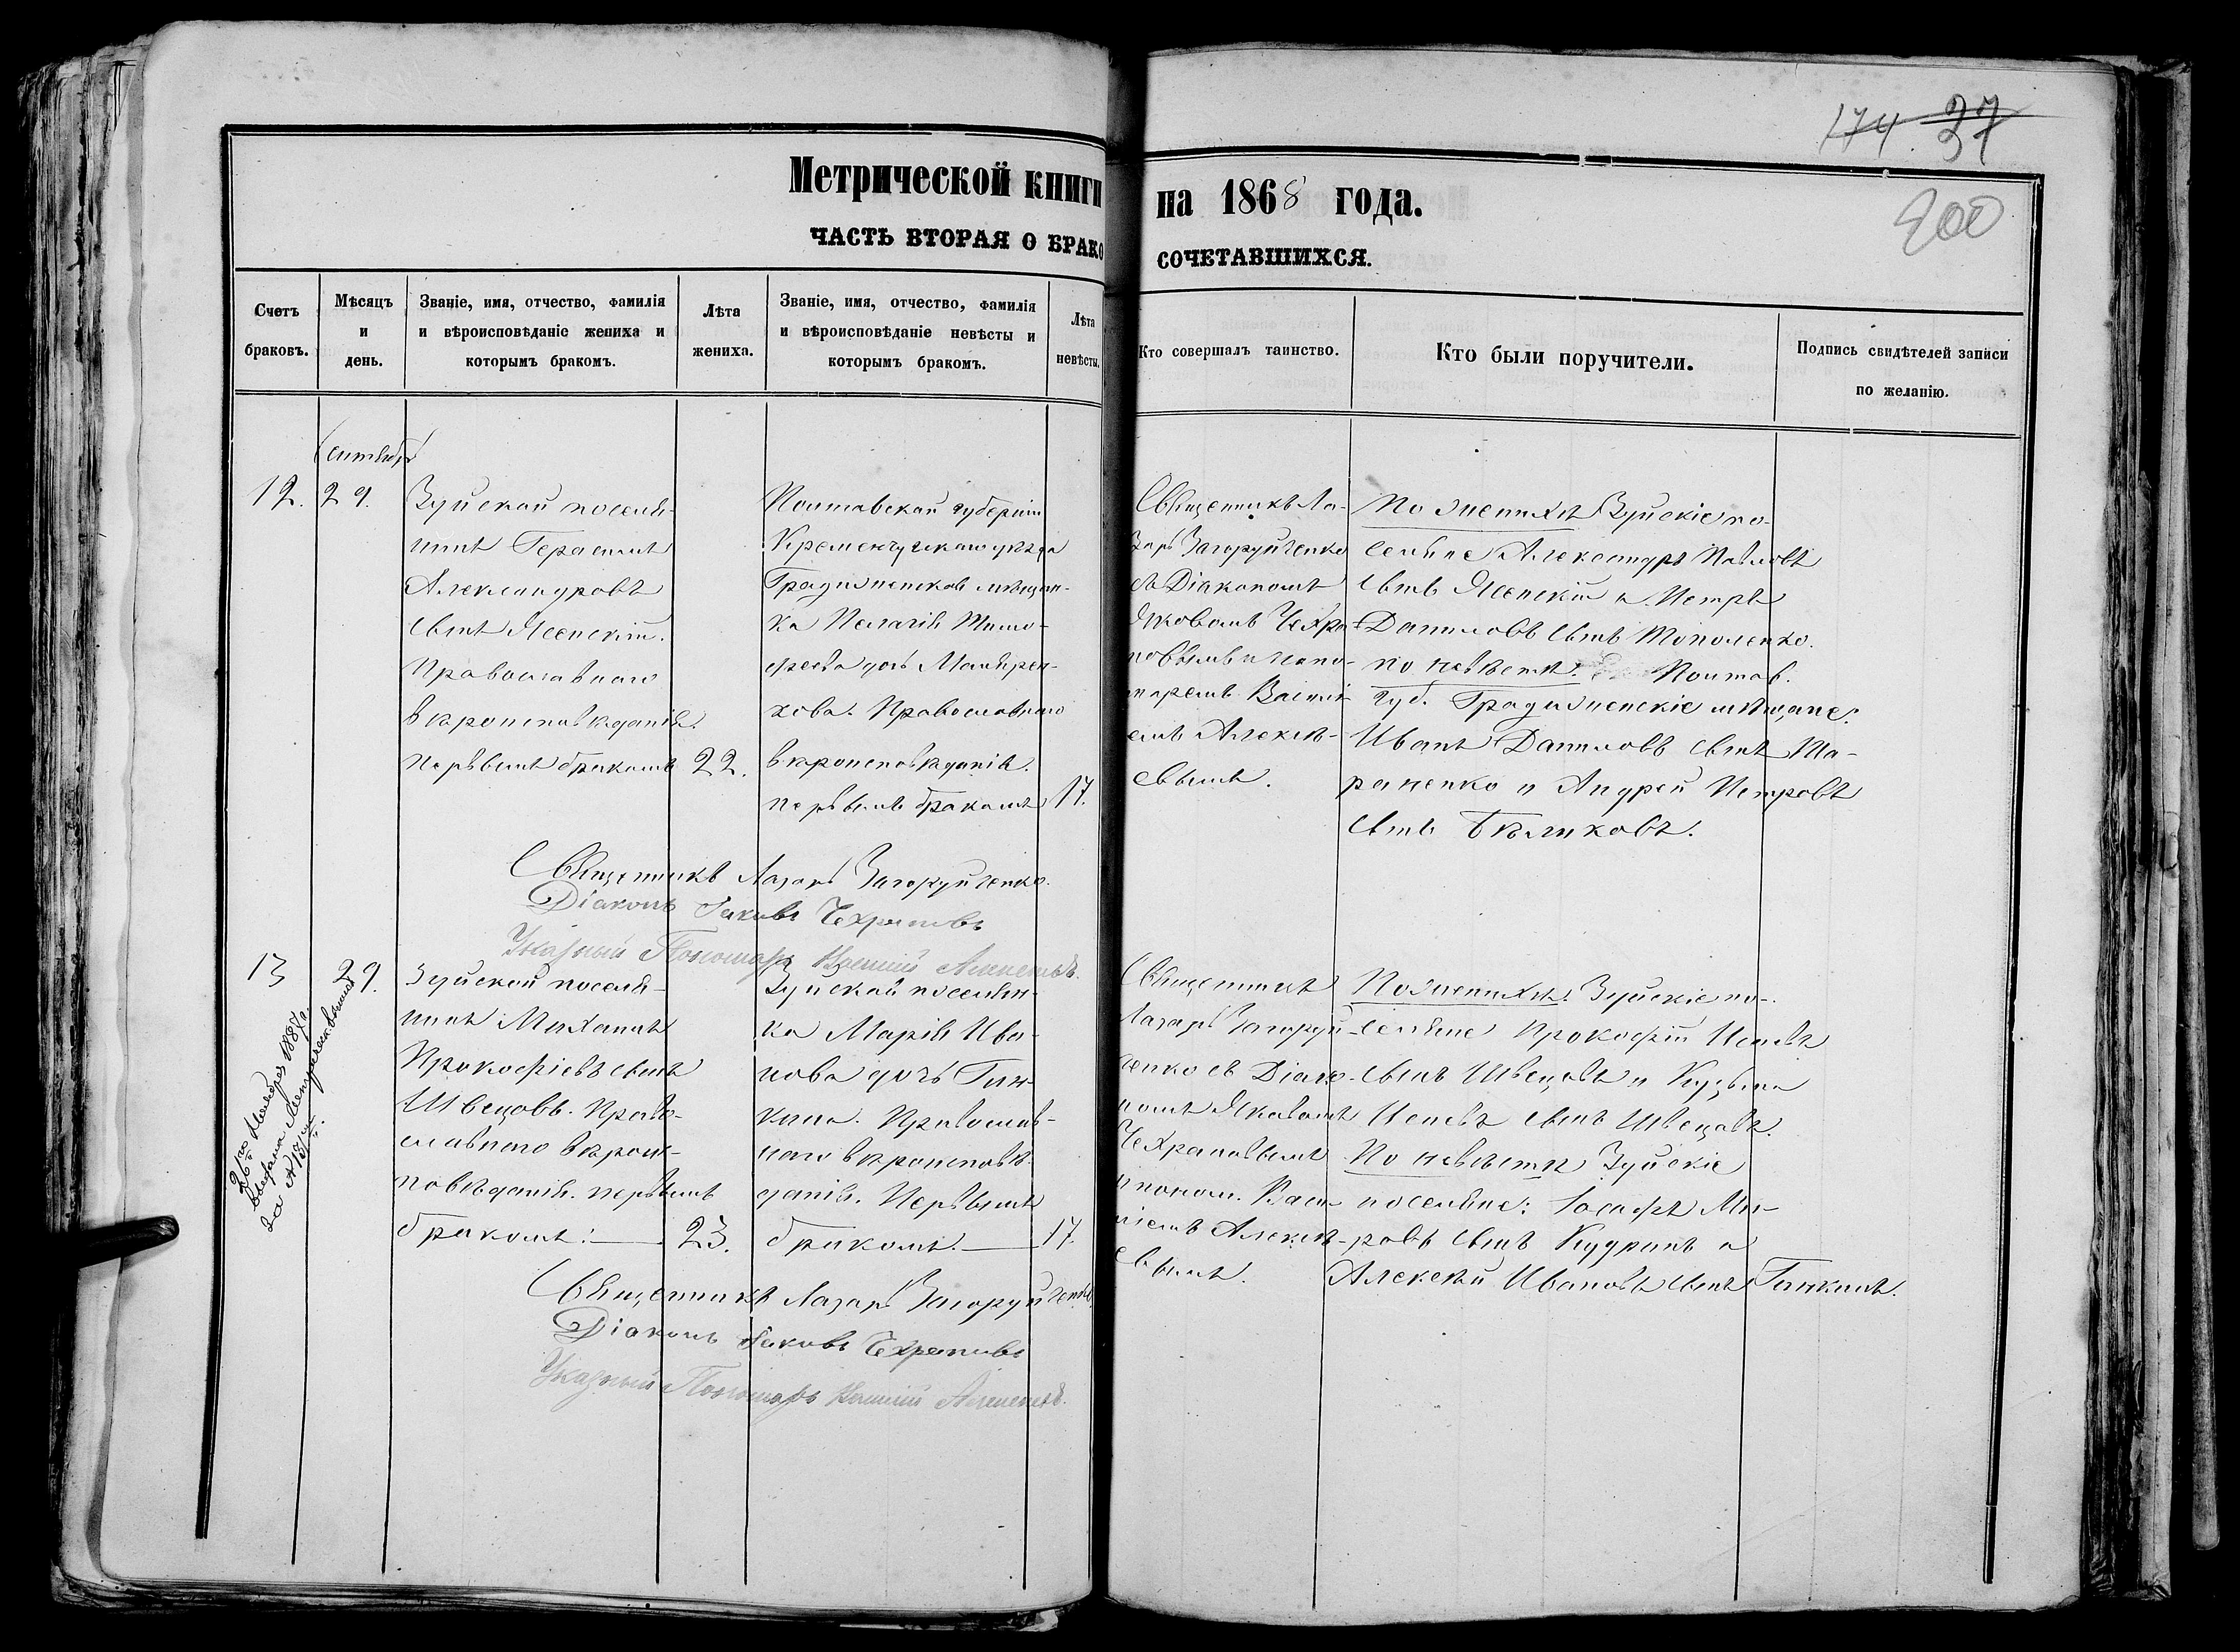 174. 37
200
Метрической книги на 1868 года.
ЧАСТЬ ВТОРАЯ О БРАКОСОЧЕТАВШИХСЯ.
Счетъ браковъ.
Мѣсяцъ и день.
Званіе, имя, отчество, фамилія и вѣроисповѣданіе жениха и которымъ бракомъ.
Лѣта жениха.
Званіе, имя, отчество, фамилія и вѣроисповѣданіе невѣсты и которымъ бракомъ.
Лѣта невѣсты.
Кто совершалъ таинство.
Кто были поручители.
Подпись свидѣтелей записи по желанію.
Сентябр
12. 29.
Зуйской поселя-
нинъ Герасимъ
Александровъ
сынъ Ясенскій.
Православнаго
вѣроисповѣданія.
первымъ бракомъ 22.
Полтавской губерніи
Кременчугскаго уѣзда
Градижская мѣщан-
ка Пелагія Тимо-
феева дочь
хова. Православнаго
вѣроисповѣданія.
первымъ бракомъ 17.
Священникъ Ла-
зарь Загоруйченко
съ Діакономъ
Яковомъ Чехра-
новымъ и поно-
маремъ Василі-
емъ Алексѣ-
евымъ.
По женихѣ Зуйскіе по-
селяне Александръ Павловъ
сынъ Ясенскій и Петръ
Даниловъ сынъ Тополенко.
по невѣстѣ: Полтав.
губ. Градижскіе мѣщане:
Иванъ Даниловъ сынъ Та-
раненко и Андрей Петровъ
сынъ Бѣликовъ.
Священникъ Лазарь Загоруйченко.
Діаконъ Іаковъ Чехрановъ
Указный Пономарь Василій Алексѣевъ.
13 29.
Зуйской поселя-
нинъ Михаилъ
Прокофіевъ сынъ
Швецовъ. Право-
славнаго вѣроис-
повѣданія. первымъ
бракомъ: 23.
Зуйская поселян-
ка Марія Ива-
нова дочь Ган-
кина. Православ-
наго вѣроисповѣ-
данія. Первымъ
бракомъ. 17.
Священникъ
Лазарь Загоруй-
ченко съ Діако-
номъ Яковомъ
Чехрановымъ
и поном. Васи-
ліемъ Алексѣ-
евымъ.
По женихѣ: Зуйскіе по-
селяне Прокофій Исаевъ
сынъ Швецовъ и Кузьма
Исаевъ сынъ Швецовъ.
По невѣстѣ Зуйскіе
поселяне: Іосифъ Ми-
ровъ сынъ Кудринъ и
Алексѣй Ивановъ сынъ Ганкинъ.
2го Ноября 1887 г.
выдана Метрическая выпись
за № 13
Священникъ Лазарь Загоруйченко
Діаконъ Іаковъ Чехрановъ
Указный Пономарь Василій Алексѣевъ.